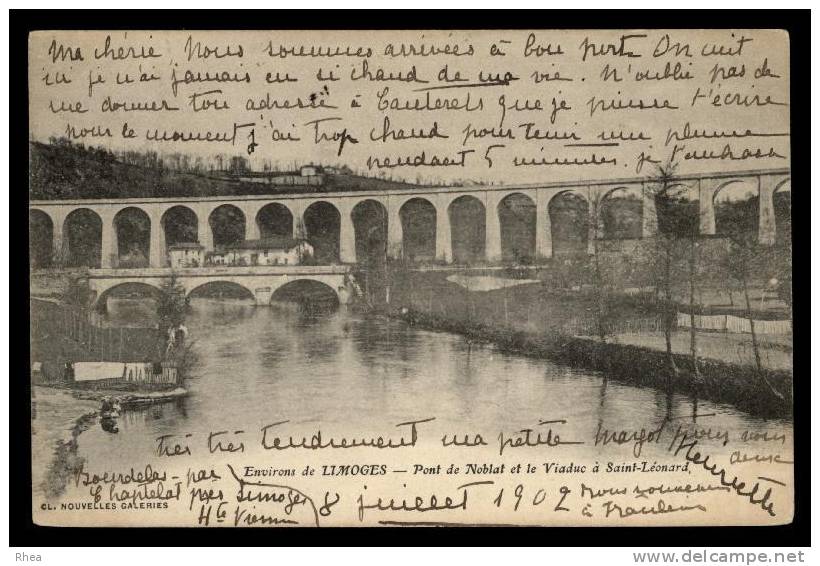 Ma chérie Nous sommes arrivées à bon port On cuit
ici je n'ai jamais eu si chaud de ma vie. N'oublie pas de
me donner ton adresse à Cauterets que je puisse t'écrire
pour le moment j'ai trop chaud pour tenir une plume
pendant 5 minutes. je t'embrasse
très très tendrement ma petite Margot pour nous
deux
Henriette
Environs de LIMOGES — Pont de Noblat et le Viaduc à Saint-Léonard
Bourdelas par
Chaptelat près Limoges
Hte Vienne
8 juillet 1902
nous sommes
à
CL. NOUVELLES GALERIES
Rhea
www.delcampe.net